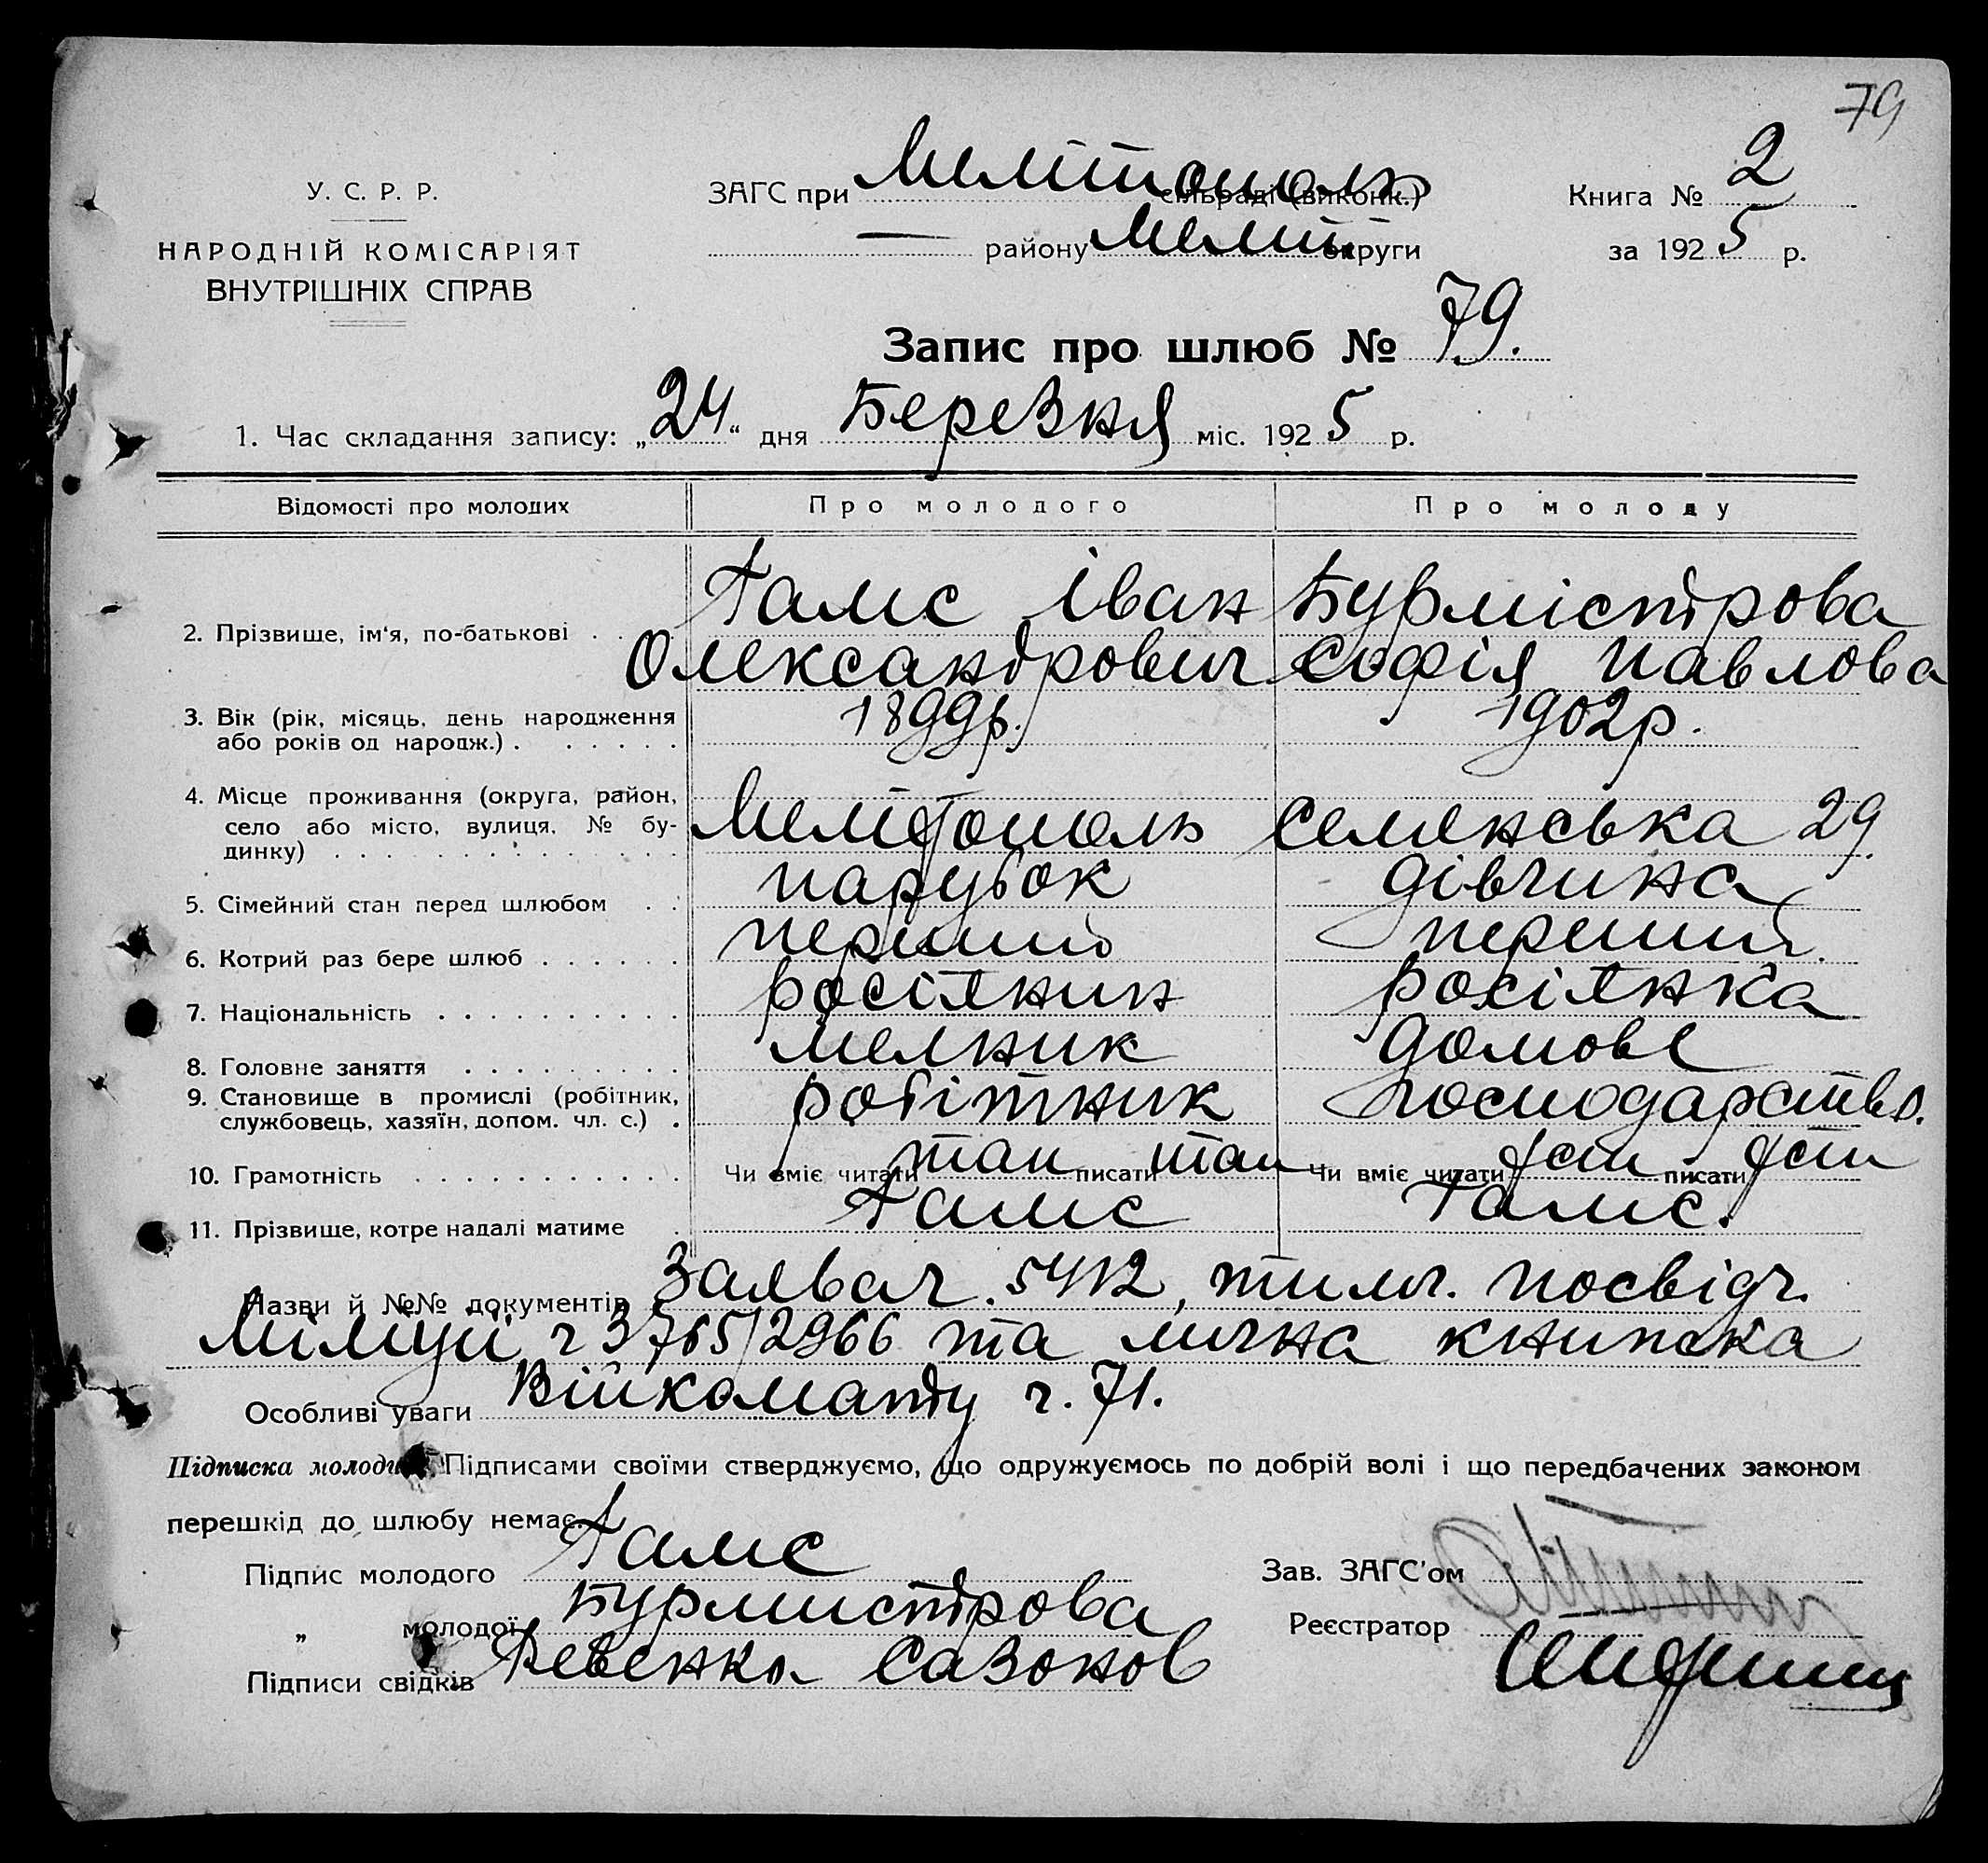 79
У. С. Р. Р.
НАРОДНІЙ КОМІСАРІЯТ
ВНУТРІШНІХ СПРАВ
ЗАГС при Мелітополь сільраді (виконк.)
— району Меліт округи
Книга № 2
за 1925 р.
Запис про шлюб № 79.
1. Час складання запису: „24“ дня Березня міс. 1925 р.
Відомості про молодих Про молодого Про молоду
2. Прізвище, ім'я, по-батькові Гамс Іван Олександрович Бурмістрова Софія Павлова
3. Вік (рік, місяць, день народження або років од народж.) 1899р. 1902р.
4. Місце проживання (округа, район, село або місто, вулиця, № будинку) Мелітополь Семенська 29.
5. Сімейний стан перед шлюбом парубок дівчина
6. Котрий раз бере шлюб перший перший
7. Національність росіянин росіянка
8. Головне заняття мелник домове
9. Становище в промислі (робітник, службовець, хазяїн, допом. чл. с.) робітник господарство.
10. Грамотність Чи вміє читати так писати так Чи вміє читати писати
11. Прізвище, котре надалі матиме Гамс Гамс.
Назви й №№ документів Заява ч. 5412, тимч. посвідч.
Міліції ч 3765/2966 та лична книжка
Особливі уваги Війкомату ч. 71.
Підписка молодих. Підписами своїми стверджуємо, що одружуємось по добрій волі і що передбачених законом
перешкід до шлюбу немає.
Підпис молодого Гамс
„ молодої Бурмистрова
Підписи свідків Сазонов
Зав. ЗАГС'ом
Реєстратор